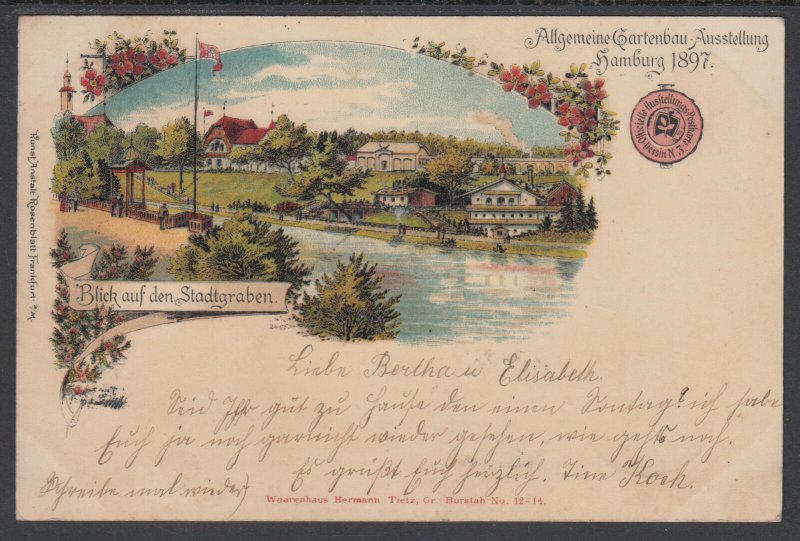 Allgemeine Gartenbau-Ausstellung
Hamburg 1897.
Officielle Ausstellungs-Postkarte
Verein N. 3
Kunst Anstalt Rosenblatt Frankfurt a/M.
Blick auf den Stadtgraben.
2405
Liebe Bertha u Elisabeth.
Seid Ihr gut zu Hause den einen Sontag? ich habe
Euch ja noch garnicht wieder gesehen, wie gehts noch.
Es grüßt Euch herzlich. Tine Koch.
Schreibe mal wieder)
Waarenhaus Hermann Tietz, Gr. Burstah No. 12-14.